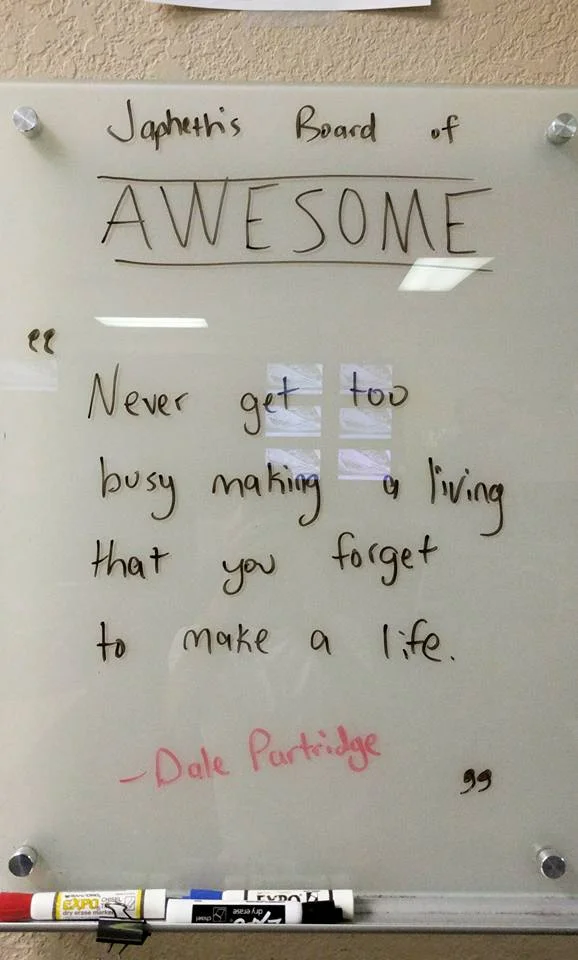 Japheth's Board of
AWESOME
“
Never get too
busy making a living
that you forget
to make a life.
-Dale Partridge
”
EXPO CHISEL
dry erase marker
EXPO
chisel dry erase